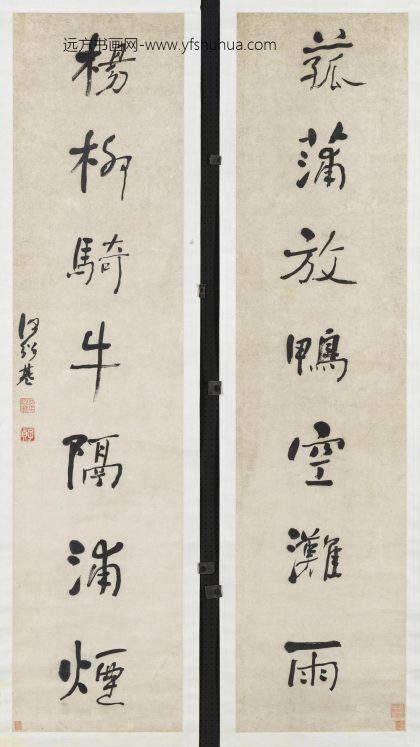 远方书画网-www.yfshuhua.com
菰蒲放鴨空灘雨
楊柳騎牛隔浦煙
何紹基